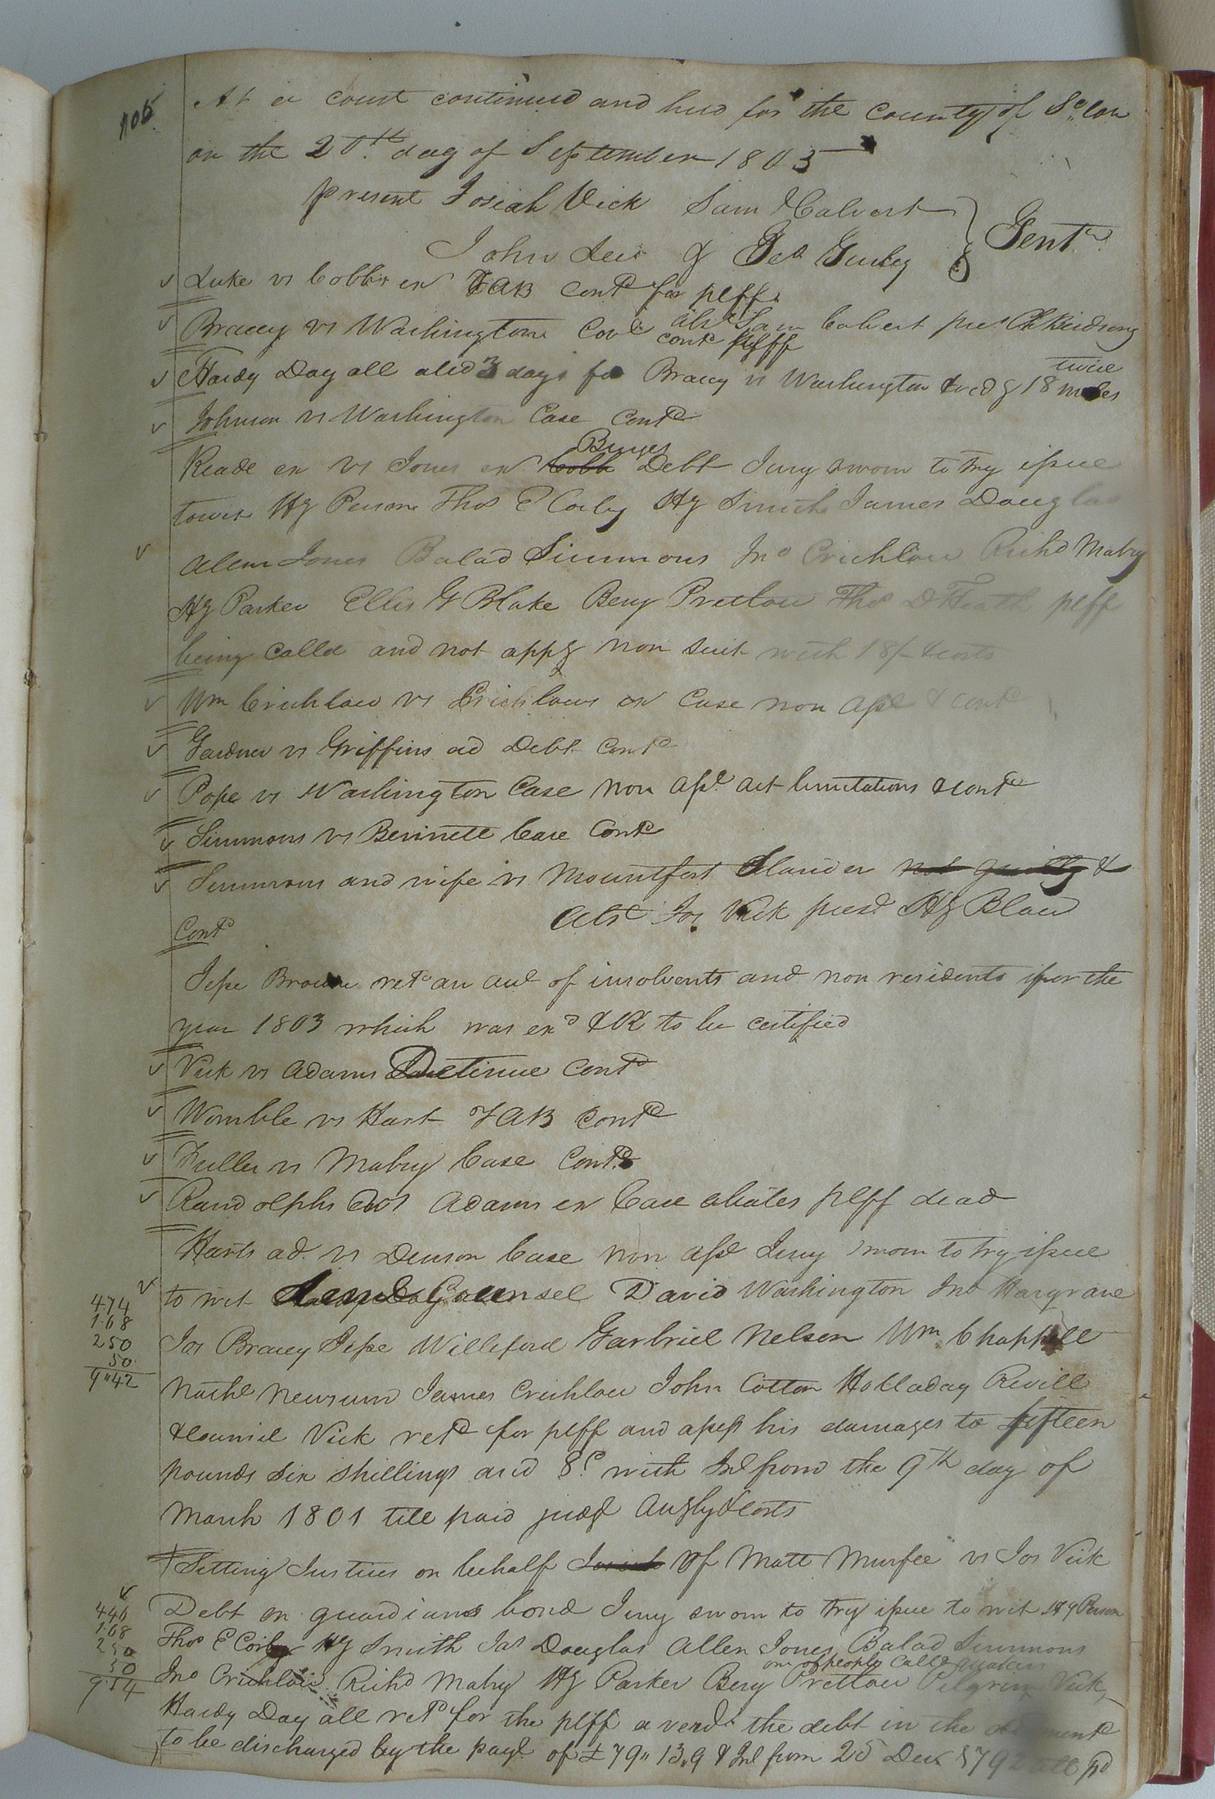 105
At a court continued and held for the County of So.ton
on the 20th. day of September 1803
present Josiah Vick Sam Calvert
John & Geo Gurley } Gentn
Luke vs Cobbs ex TAB contd for plff
Bracey vs Washington Covt abst Sam Calvert pres
contd plff
Hardy Day all alld 3 days for Bracey vs Washington & 18 miles
twice
Johnson vs Washington Case Contd
Reade ex vs Jones ex Debt Jury sworn to try issue
towit Hy Person Thos E Corby Hy Smith James Douglas
Allen Jones Balad Simmons Jno Crichlow Richd Mabry
Hy Parker Ellis G Blake Benj Pretlow Thos plff
being calld and not appg non suit with 18/ & costs
Wm Crichlow vs Crichlows ex Case non assl & contd
Gardner vs Griffins ad Debt contd
Pope vs Washington Case non assl. act limitations & contd
Simmons vs Bennett Case Contd
Simmons and wife vs Mountfort Slander not guilty &
Abst Jos Vick prest Hy Blow
Contd
Jesse Brown retd an acct of insolvents and non residents for the
year 1803 which was exd & to be certified
Vick vs Adams Detinue Contd
Womble vs Hart TAB Contd
Fuller vs Mabry Case Contd
Randolphs vs Adams ex Case abates plff dead
Harts ad. vs Denson Case non assl Jury sworn to try issue
to wit Counsel David Washington Jno Hargrave
474
168
250
50
9"42
Jos Bracey Jesse Williford Garbriel Nelson Wm Chappell
Nathl Newsum James Crichlow John Cotton Holladay Revill
& Council Vick retd for plff and assess his damages to fifteen
pounds six shillings and 8d with Int from the 9th day of
March 1801 till paid judgt & costs
Setting Justices on behalf Of Matt Murfee vs Jos Vick
Debt on guardians bond Jury sworn to try issue to wit Hy Person
446
168
250
50
9.14
Thos E Corby Hy Smith Jas Douglas Allen Jones Balad Simmons
one of people calld quakers
Jno Crichlow Richd Mabry Hy Parker Benj Pretlow Pilgrim Vick,
Hardy Day all retd for the plff a verdt the debt in the
to be discharged by the payt of £79"13.9 & Int from 25 Decr 1792 till pd